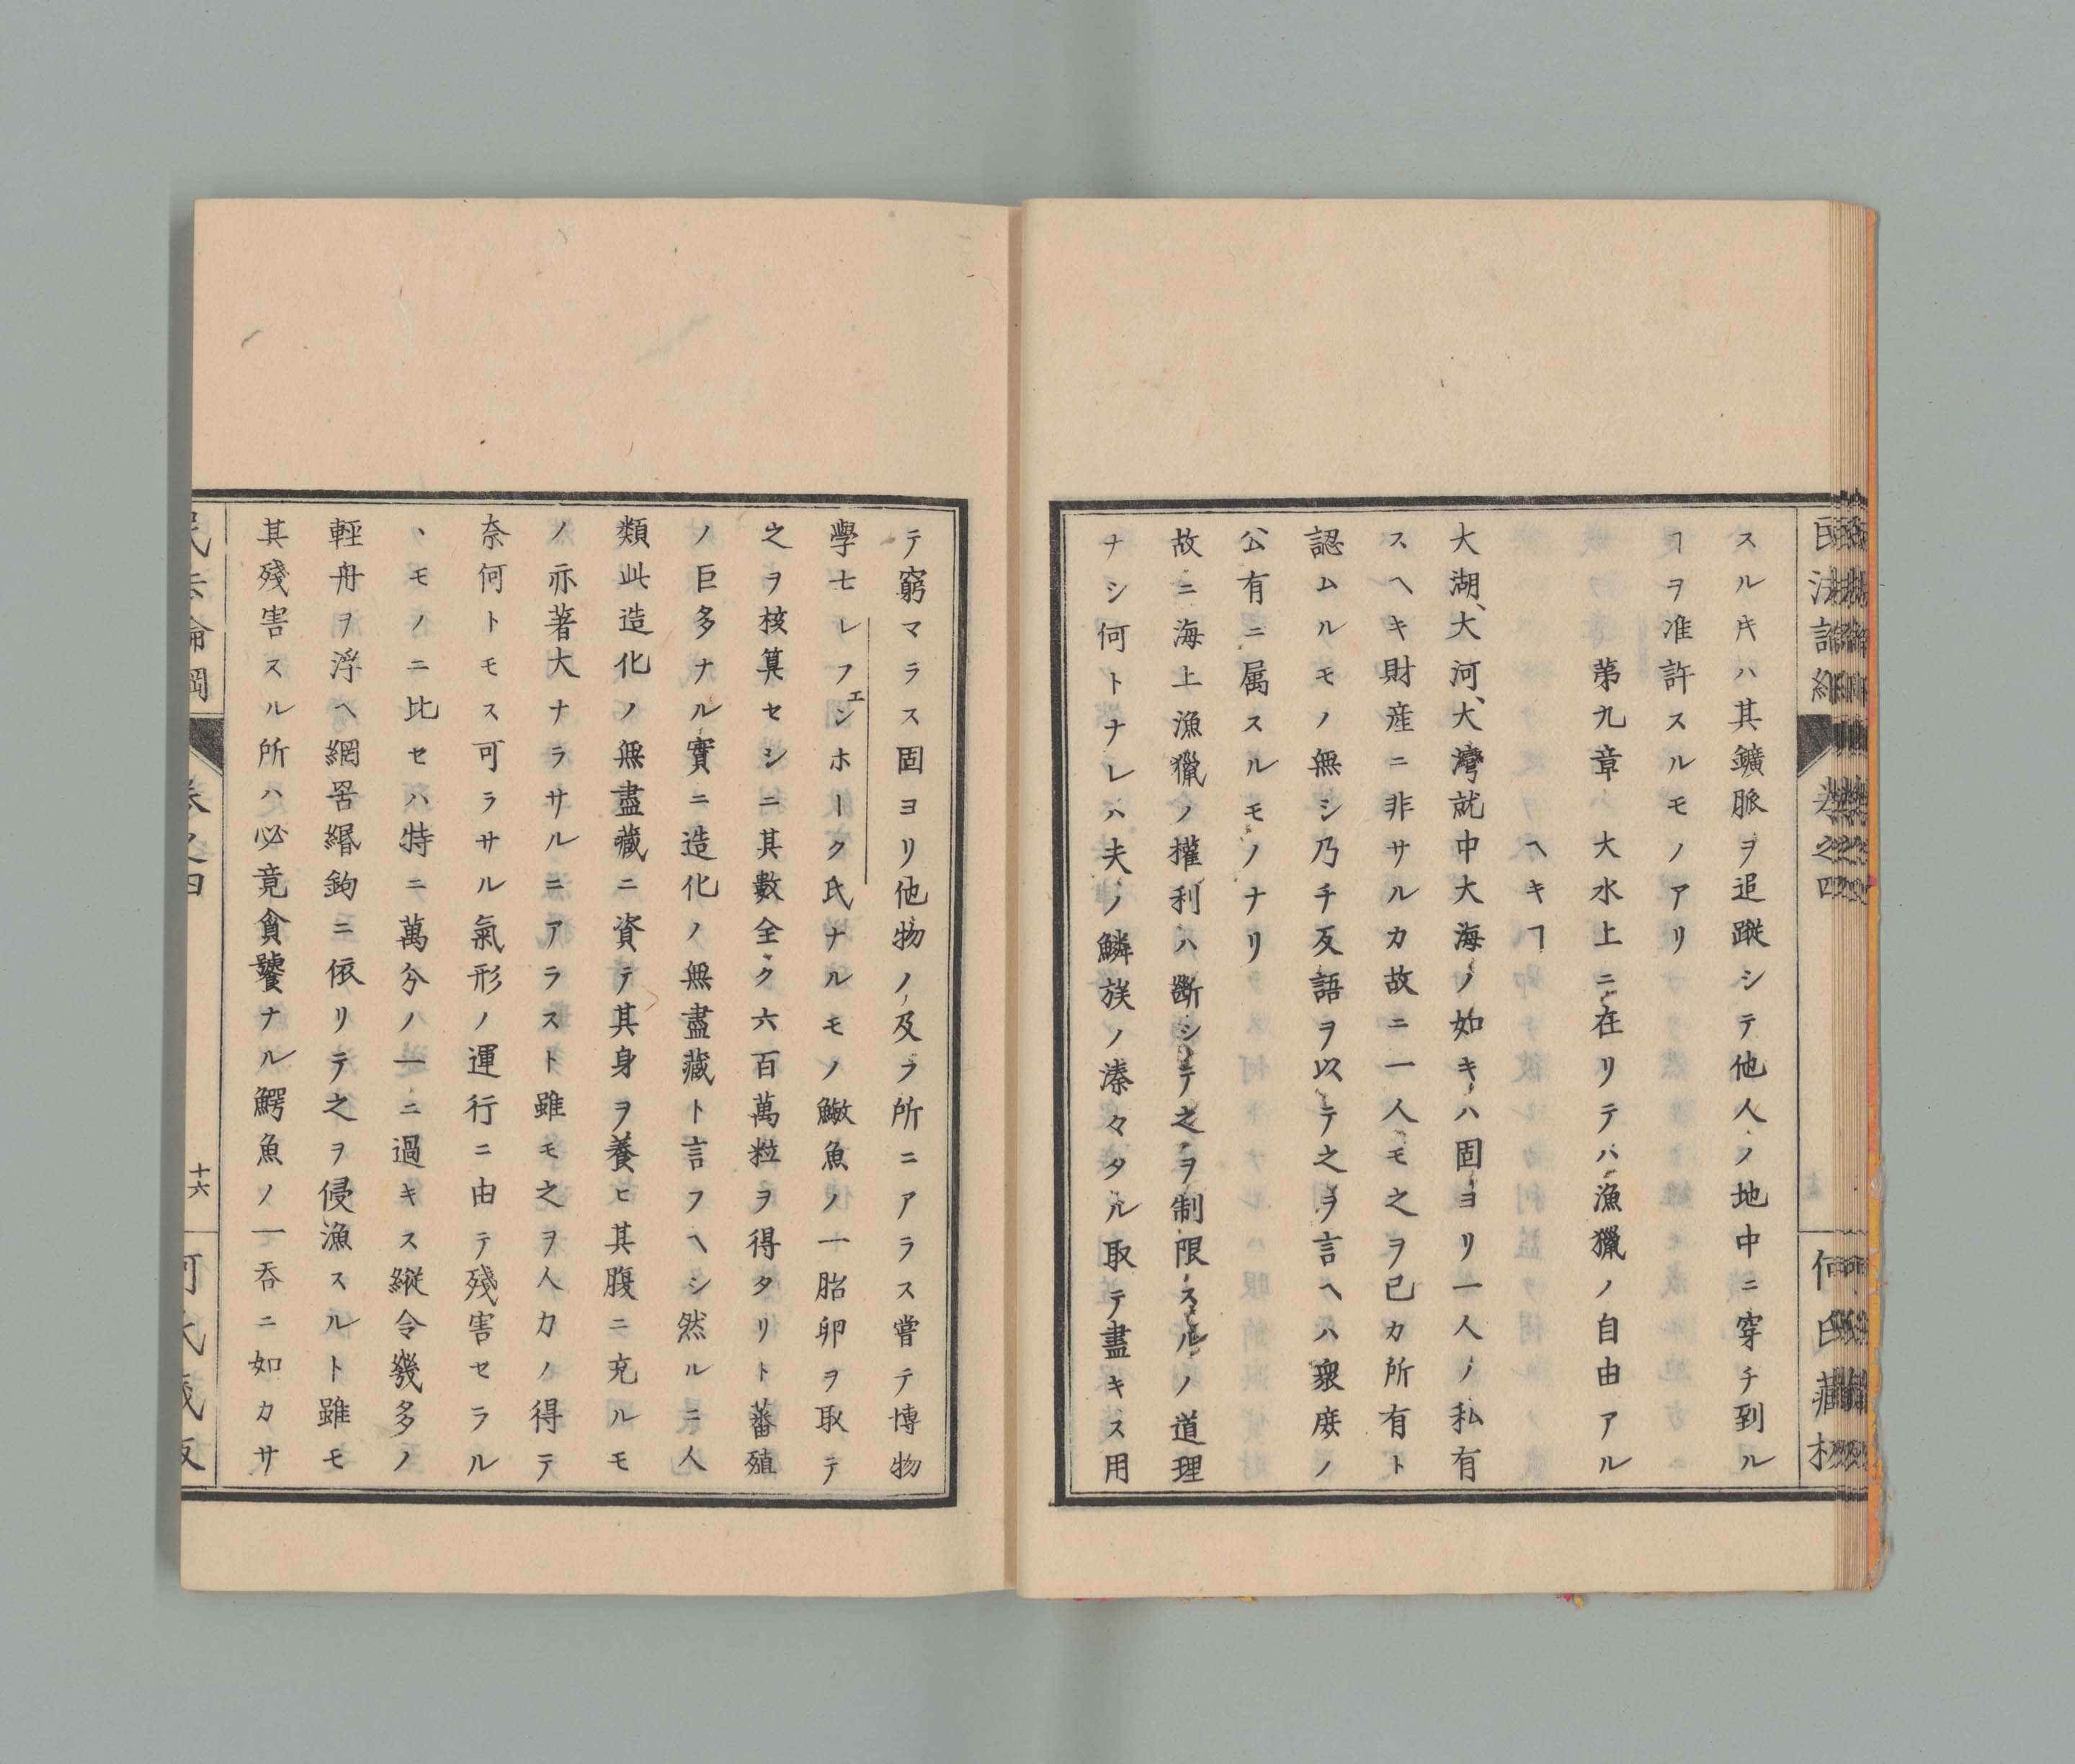 民法論綱
卷之四
何氏藏板
スルキハ其鑛脈ヲ追蹤シテ他人ノ地中ニ穿チ到ル
ヿヲ准許スルモノアリ
第九章 大水上ニ在リテハ漁獵ノ自由アル
ヘキヿ
大湖、大河、大灣就中大海ノ如キハ固ヨリ一人ノ私有
スヘキ財産ニ非サルカ故ニ一人モ之ヲ已カ所有ト
認ムルモノ無シ乃チ反語ヲ以テ之ヲ言ヘハ衆庶ノ
公有ニ属スルモノナリ
故ニ海上漁獵ノ權利ハ斷シテ之ヲ制限スルノ道理
ナシ何トナレハ夫ノ鱗族ノ溱々タル取テ盡キス用
テ窮マラス固ヨリ他物ノ及フ所ニアラス嘗テ博物
學士レフエンホーク氏ナルモノ鰵魚ノ一胎卵ヲ取テ
之ヲ核算セシニ其數全ク六百萬粒ヲ得タリト蕃殖
ノ巨多ナル實ニ造化ノ無盡藏ト言フヘシ然ルニ人
類此造化ノ無盡藏ニ資テ其身ヲ養ヒ其腹ニ充ルモ
ノ亦著大ナラサルニアラスト雖モ之ヲ人力ノ得テ
奈何トモス可ラサル氣形ノ運行ニ由テ殘害セラル
ヽモノニ比セハ特ニ萬分ノ一ニ過キス縦令幾多ノ
輕舟ヲ浮ヘ網罟緡鉤ニ依リテ之ヲ侵漁スルト雖モ
其殘害スル所ハ必竟貪饕ナル鰐魚ノ一呑ニ如カサ
民法論綱
卷之四
十六
何氏藏板